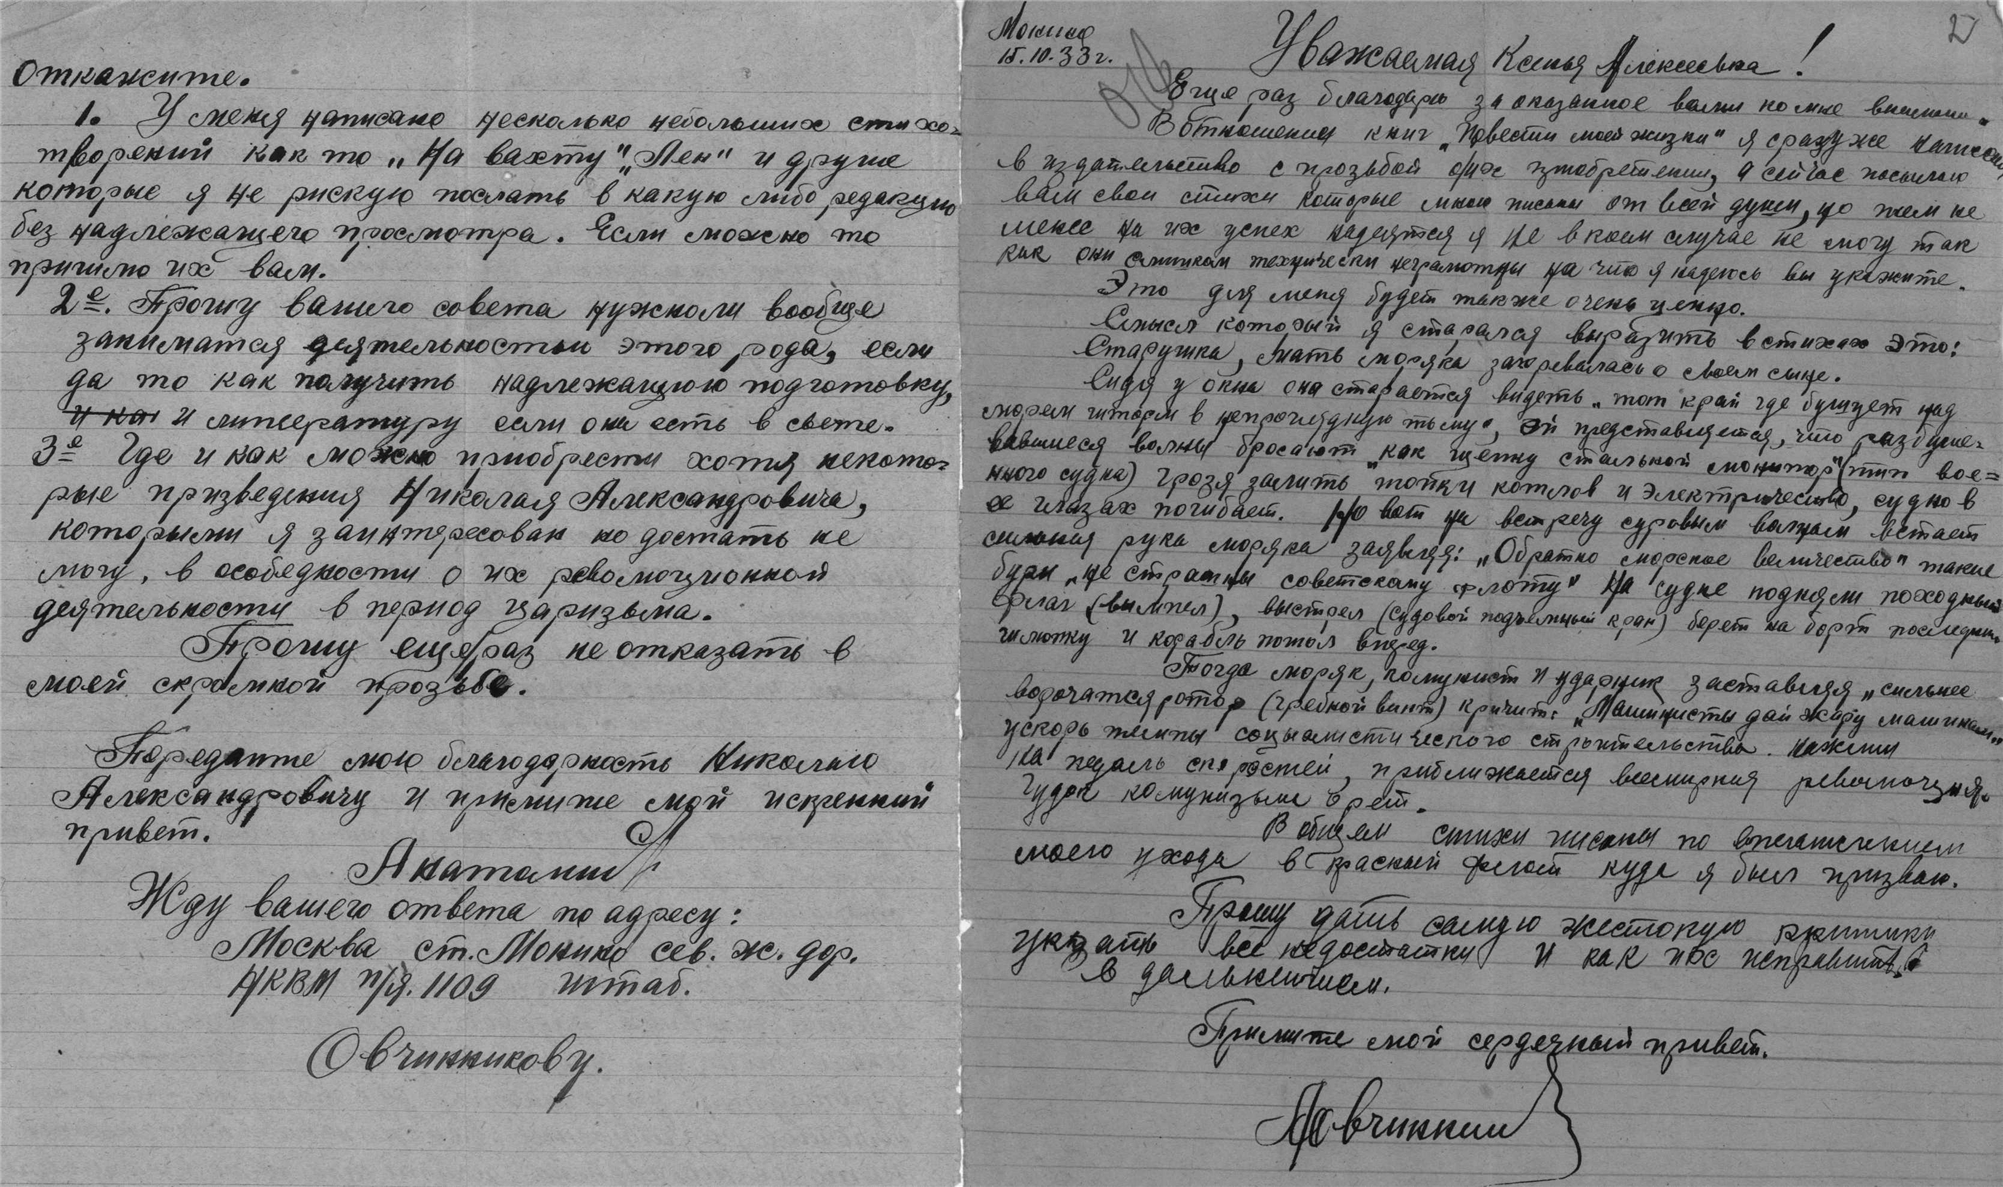 откажите.
1. У меня написано несколько небольших стихо-
творений как то „На вахту", „Лен" и другие
которые я не рискую послать в какую либо редакцию
без надлежащего просмотра. Если можно то
пришлю их вам.
2е. Прошу вашего совета нужноли вообще
заниматся деятельностью этого рода, если
да то как получить надлежащюю подготовку,
и как и литературу если она есть в свете.
3е Где и как можно приобрести хотя некото-
рые призведения Николая Александровича,
которыми я заинтересован но достать не
могу, в особедности о их революционной
деятельности в период царизьма.
Прошу ещераз не отказать в
моей скромной прозьбе.
Передайте мою благодарность Николаю
Александровичу и примите мой искренний
привет.
Анатолий
Жду вашего ответа по адресу:
Москва ст. Монино сев. ж. дор.
НКВМ п/я. 1109 штаб.
Овчинникову.
2
Монино
15.10.33г.
Уважаемая Ксенья Алексеевна!
Еще раз благодарю за оказанное вами ко мне внимание.
В отношении книг „Повести моей жизни" я сразу же написал
в издательство с прозьбой о/их приобретении, а сейчас посылаю
вам свои стихи которые мною писаны от всей души, но тем не
менее на их успех надеятся я не в коем случае не могу так
как они слишком технически неграмотны на что я надеюсь вы укажите.
Это для меня будет также очень ценно.
Смысл который я старался выразить в стихах это:
Старушка, мать моряка загоревалась о своем сыне.
Сидя у окна она старается видеть „тот край где бушует над
морем шторм в непроглядную тьму", ей представляется, что разбуше-
вавшиеся волны бросают „как щепку стальной монитор" (тип вое-
нного судна) грозя залить топки котлов и электричество, судно в
ее глазах погибает. Но вот на встречу суровым волнам встает
сильная рука моряка заявляя: „Обратно морское величество" такие
бури „не страшны советскому флоту" На судне подняли походный
флаг (вымпел), выстрел (судовой подъемный кран) берет на борт последнюю
шлюпку и корабль пошол вперед.
Тогда моряк, комунист и ударник заставляя „сильнее
ворочатся ротор (гребной винт) кричит: „Машинисты дай жару машинам"
ускорь темпы социалистического строительства. нажми
на педаль скоростей, приближается всемирная революция.
Гудок комунизьма орет.
В общем стихи писаны по впечатлением
моего ухода в красный флот куда я был призван.
Прошу дать самую жестокую критику
указать все недостатки и как их исправить
в дальнейшем.
Примите мой сердечный привет.
АОвчинник